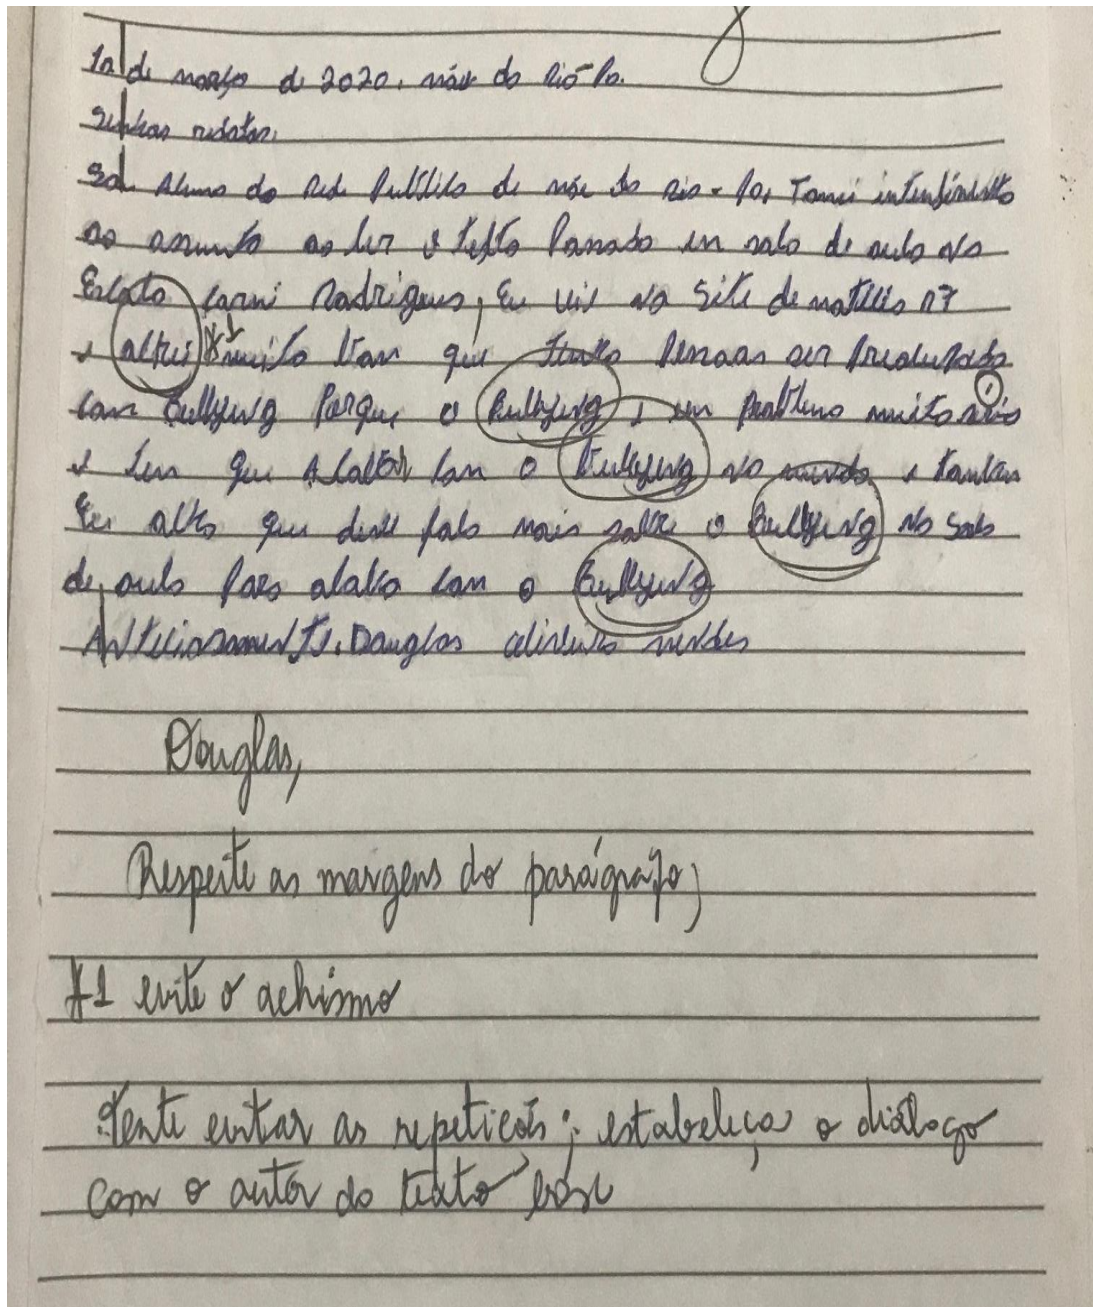 10 de março de 2020, mãe do Rio-Pa.
Senhor redator,
Sou Aluno da Rede Pública de mãe do rio-Pa, Tomei
ao assunto ao ler o texto Passado em sala de aula na
Escola Rodrigues, Eu vi no site de notícias R7
e altei *1 muito bom que Pessoas ser
com Bullying Porque o Bullying e um Problema muito sério
e tem que Acabar com o Bullying no mundo e
Eu alto que deve fala mais sobre o Bullying na sala
de aula Para acaba com o Bullying
Douglas
Douglas,
Respeite as margens do parágrafo;
*1 evite o achismo
Tente evitar as repetições; estabeleça o diálogo
com o autor do texto base